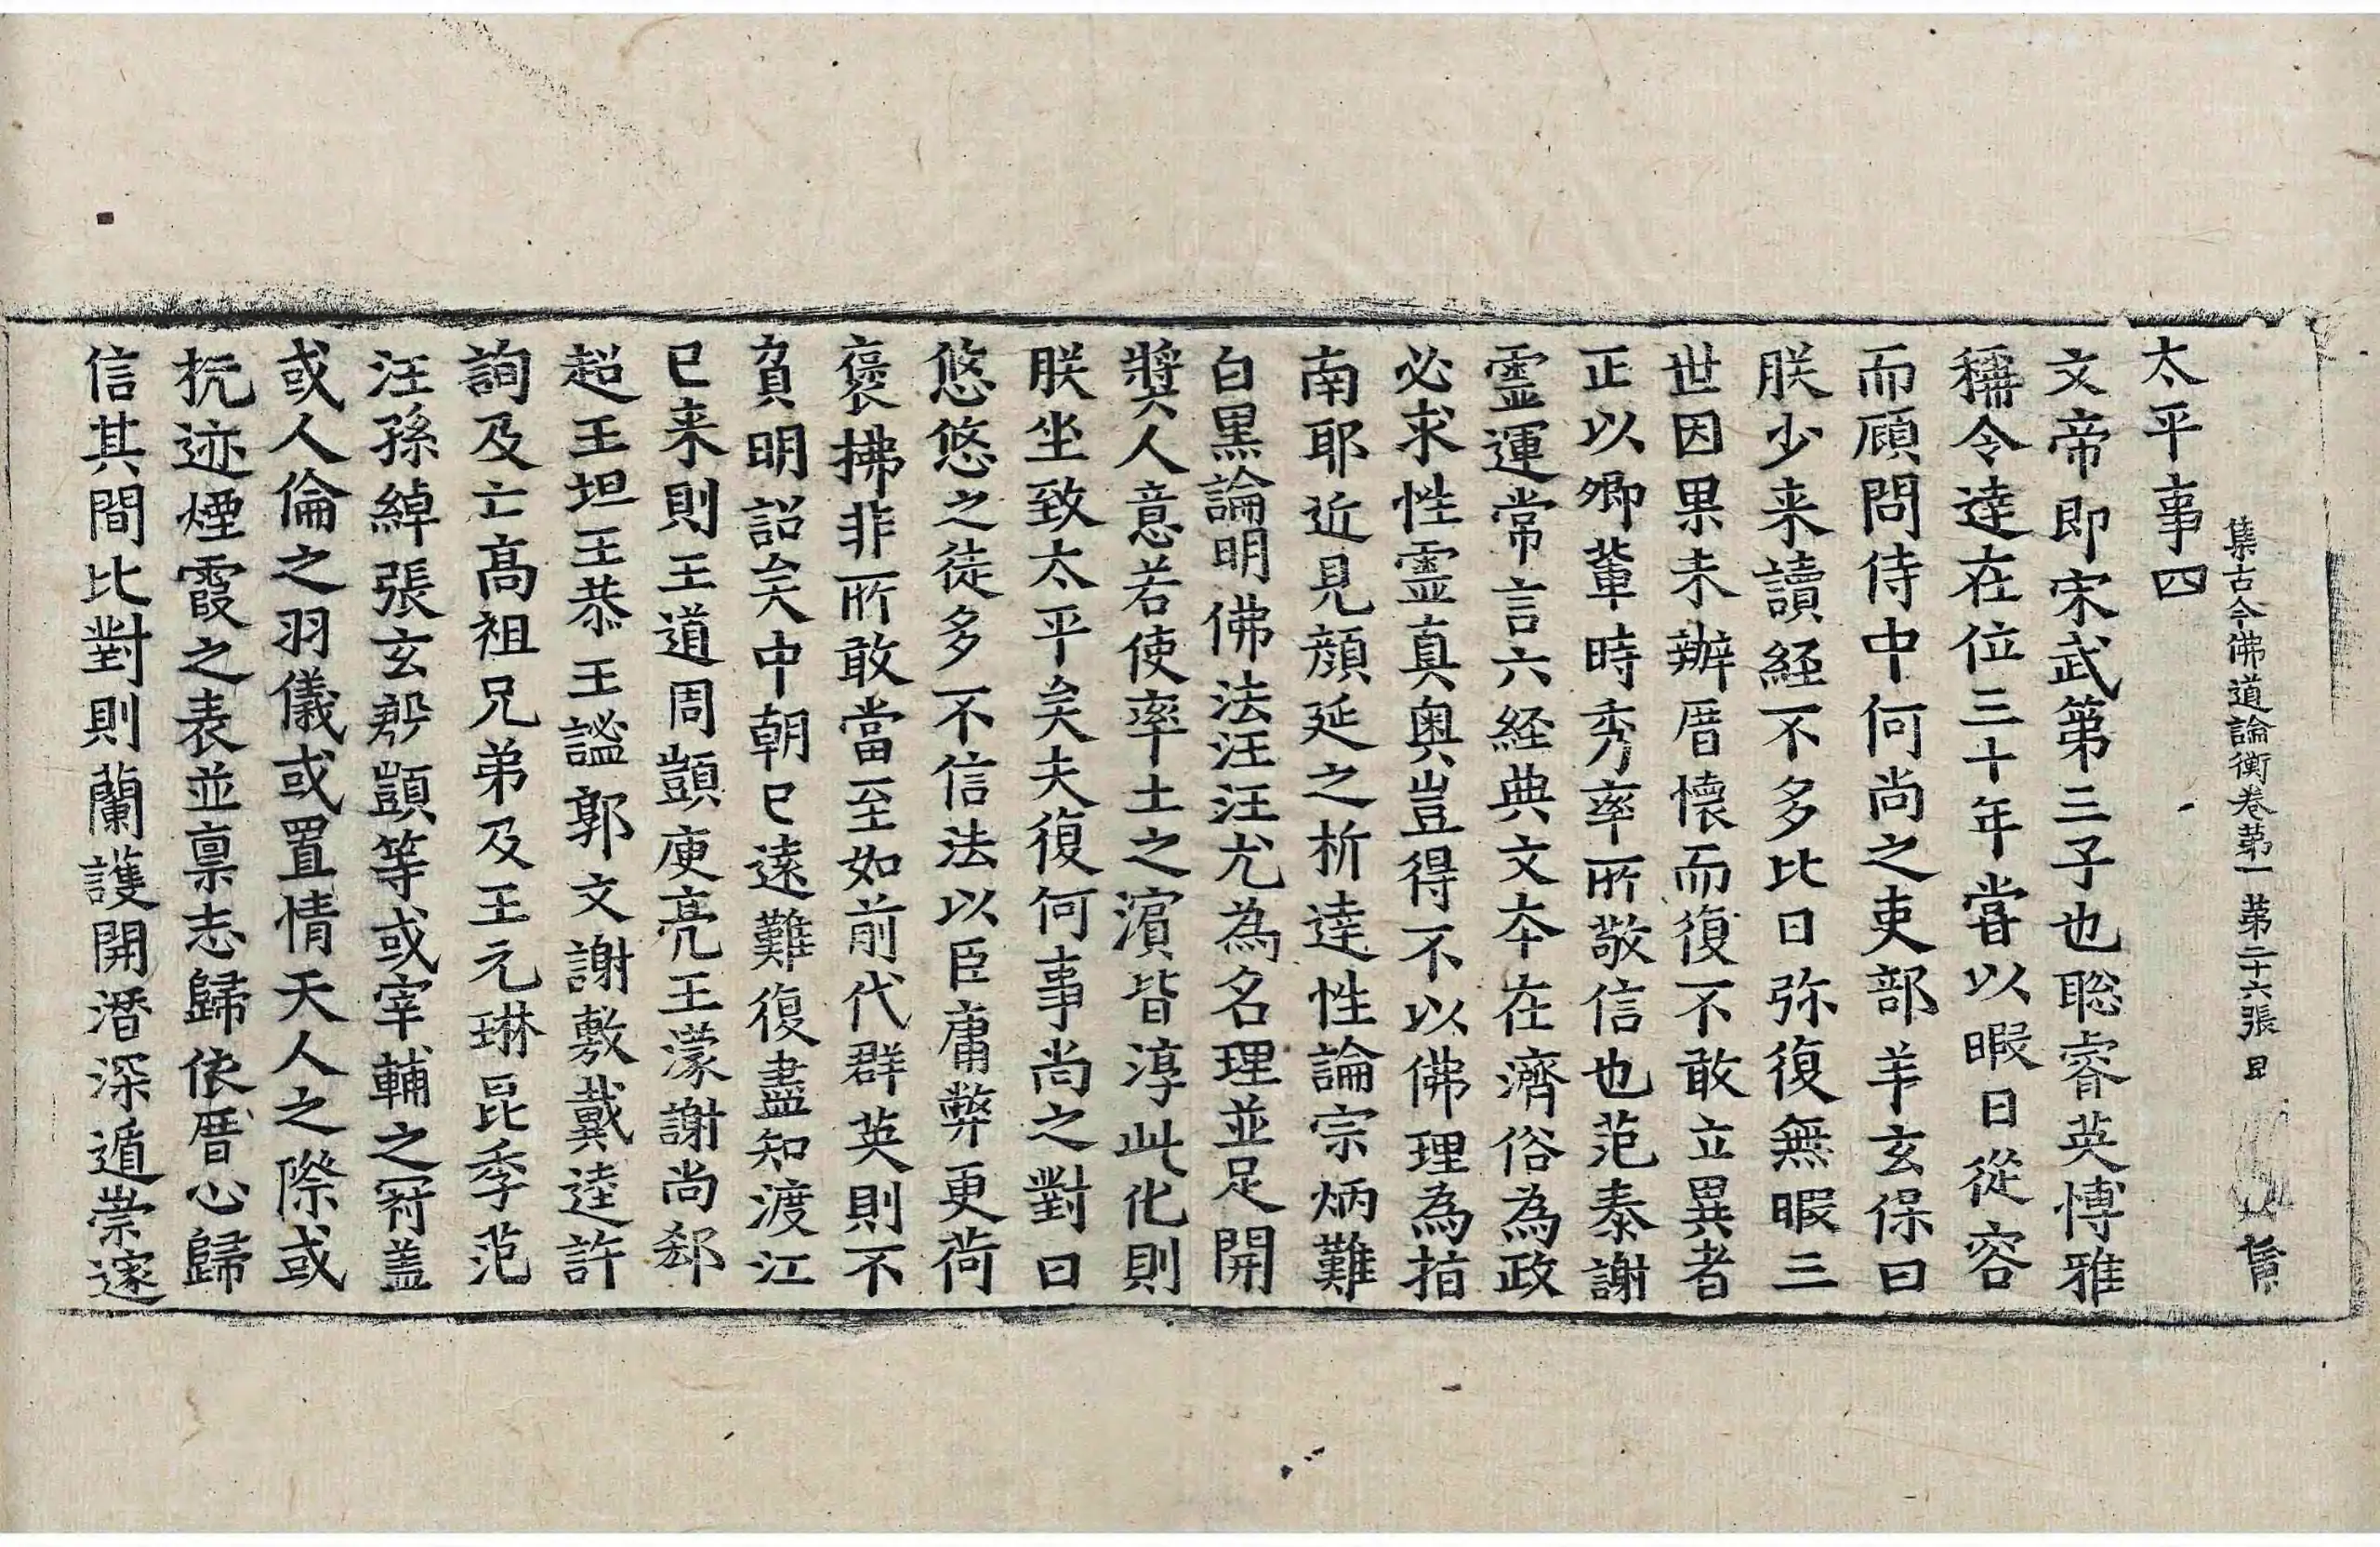 集古今佛道論衡卷苐一 苐二十六張 㠯
太平事四
文帝即宋武第三子也聡睿英博雅
稱令達在位三十年嘗以暇日從容
而顧問侍中何尚之吏部羊玄保曰
朕少来讀経不多比日弥復無暇三
世因果未辦厝懷而復不敢立異者
正以卿輩時秀率所敬信也范泰謝
靈運常言六経典文本在濟俗為政
必求性靈真奥豈得不以佛理為指
南耶近見顔延之析達性論宗炳難
白黒論明佛法汪汪尤為名理並足開
奬人意若使率土之濵皆淳此化則
朕坐致太平矣夫復何事尚之對曰
悠悠之徒多不信法以臣庸弊更荷
褒拂非所敢當至如前代群英則不
負明詔矣中朝已遠難復盡知渡江
已来則王道周顗庾亮王濛謝尚郄
超王坦王恭王謐郭文謝敷戴逵許
詢及亡髙祖兄弟及王元琳昆季范
汪孫綽張玄殷顗等或宰輔之冠盖
或人倫之羽儀或置情天人之際或
抗迹煙霞之表並禀志歸依厝心歸
信其間比對則蘭護開潛深遁崇邃